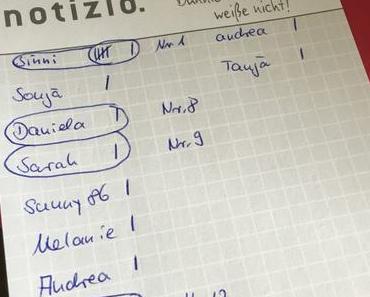 notizio.
weiße nicht!
Sinni |||| | Nr. 1 andrea |
Sonja | Tanja |
Daniela | Nr. 8
Sarah | Nr. 9
Sunny 86 |
Melanie |
Andrea |